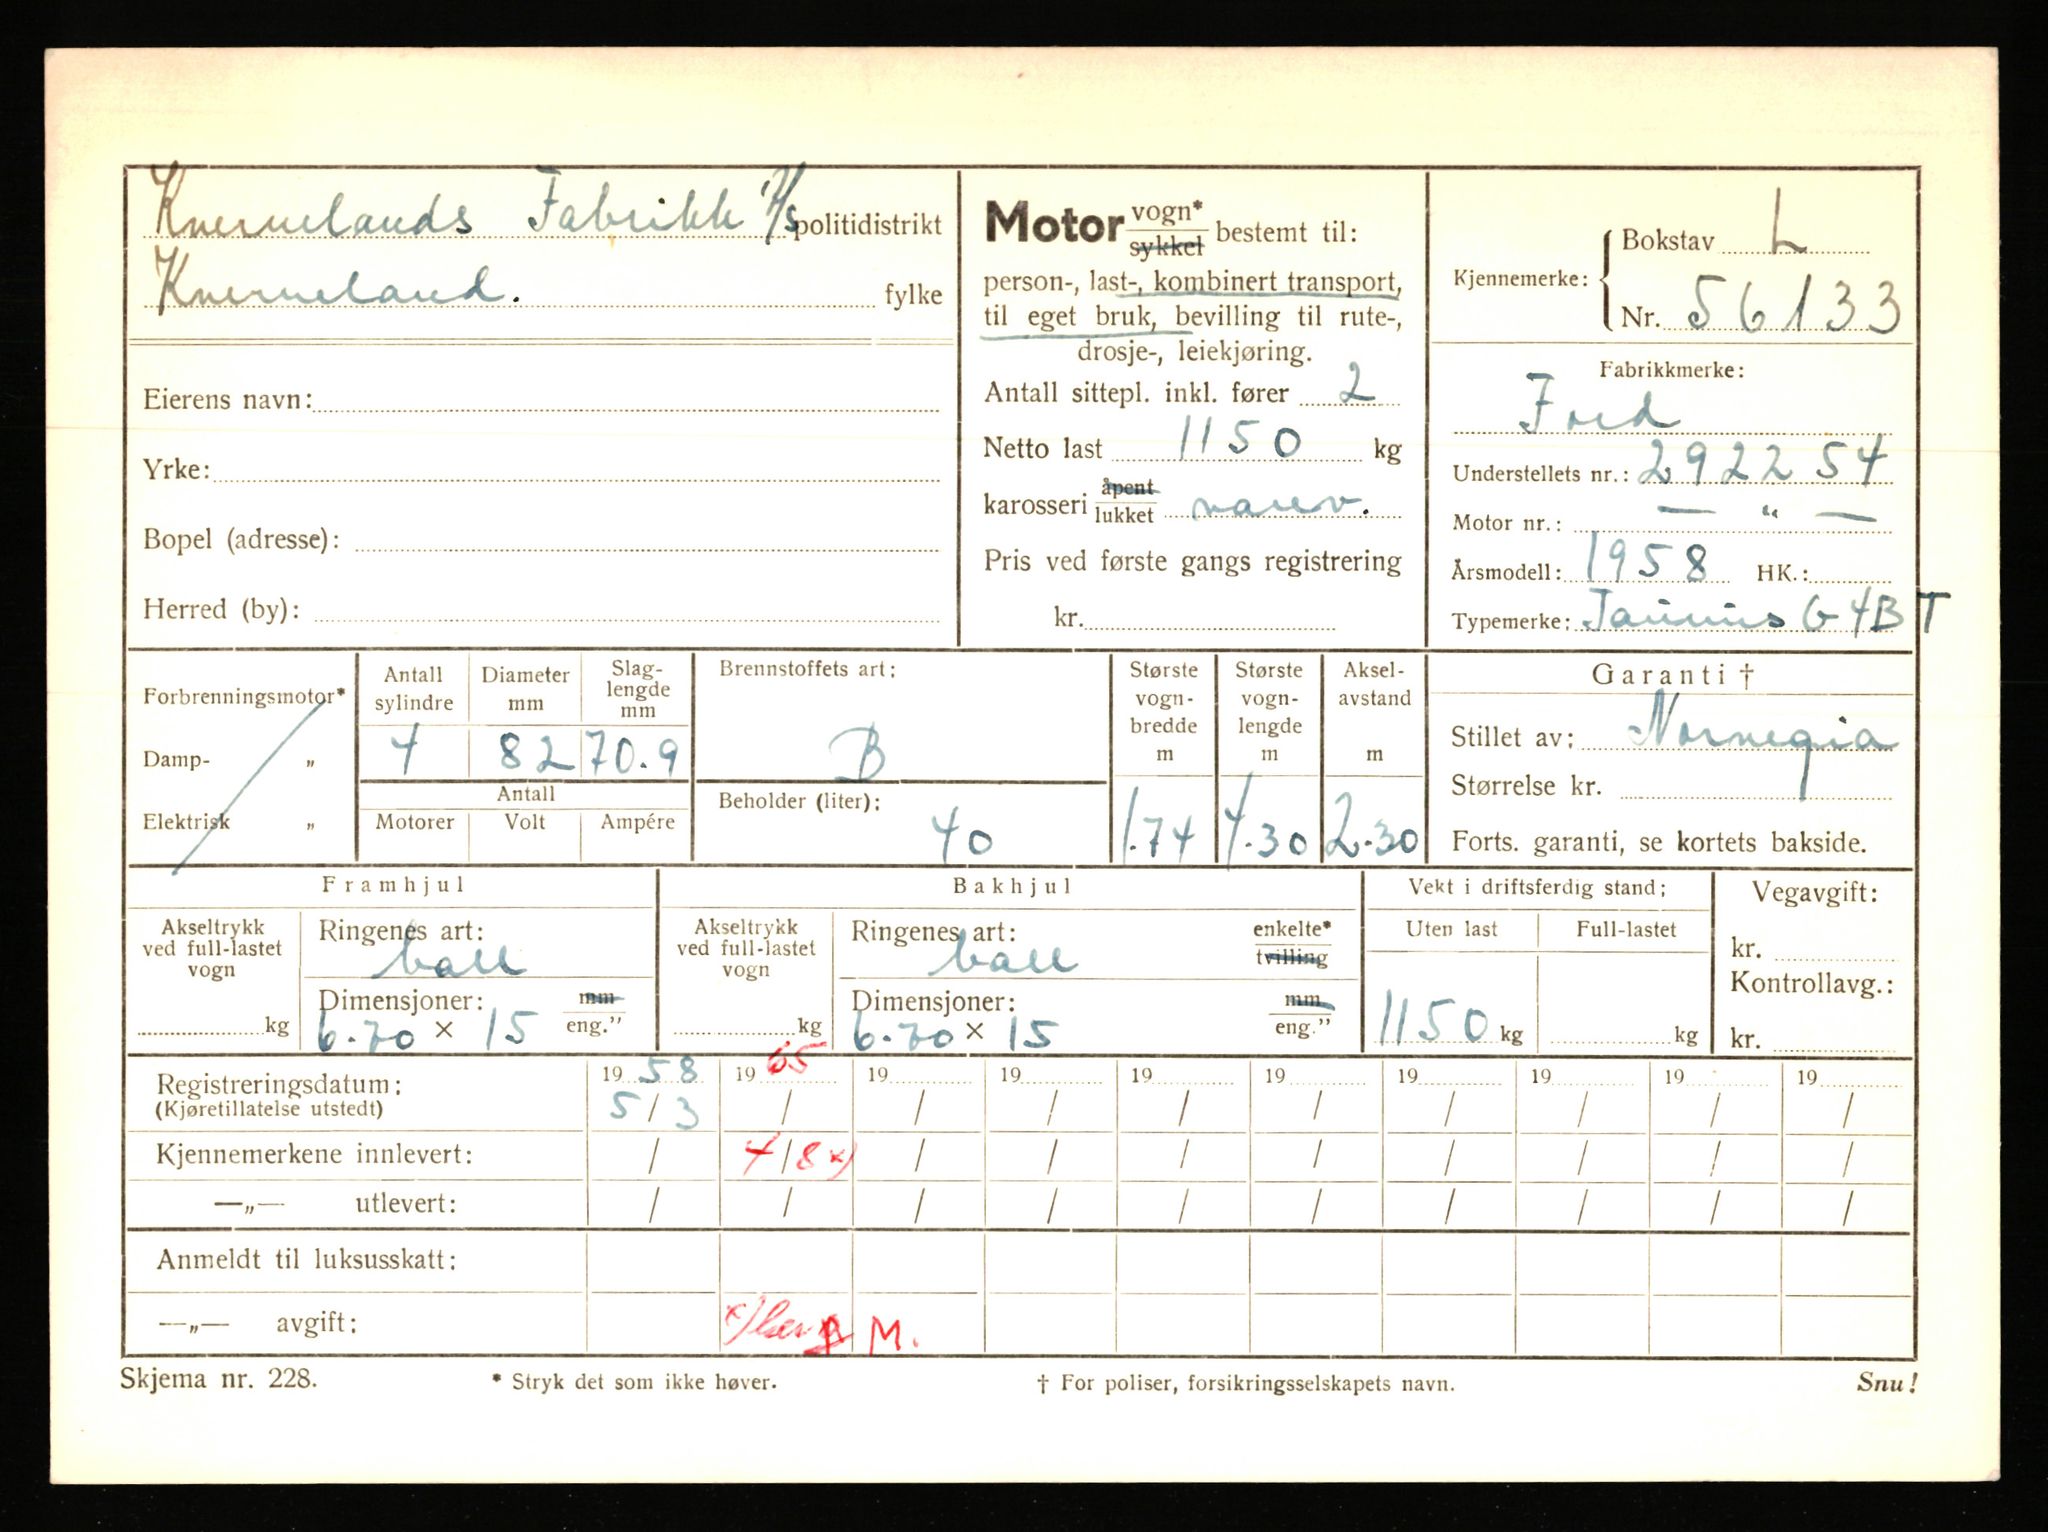 Kvernelands Fabrikk A/S politidistrikt
Kverneland. fylke
Eierens navn:
Yrke:
Bopel (adresse):
Herred (by):
Motor vogn* sykkel bestemt til:
person-, last-, kombinert transport,
til eget bruk, bevilling til rute-,
drosje-, leiekjøring.
Antall sittepl. inkl. fører 2
Netto last 1150 kg
karosseri åpent lukket varev.
Pris ved første gangs registrering
kr.
Kjennemerke: Bokstav L
Nr. 56133
Fabrikkmerke:
Ford
Understellets nr.: 292254
Motor nr.: — " —
Årsmodell: 1958 HK.:
Typemerke: Taunus G4BT
Forbrenningsmotor*
Damp- "
Elektrisk "
Antall sylindre
Diameter mm
Slag-lengde mm
4 82 70.9
Antall
Motorer Volt Ampére
Brennstoffets art:
B
Beholder (liter):
40
Største vogn-bredde m
1.74
Største vogn-lengde m
4.30
Aksel-avstand m
2.30
Garanti †
Stillet av: Norvegia
Størrelse kr.
Forts. garanti, se kortets bakside.
Framhjul
Akseltrykk ved full-lastet vogn
kg
Ringenes art:
ball
Dimensjoner: mm eng."
6.70 × 15
Bakhjul
Akseltrykk ved full-lastet vogn
kg
Ringenes art: enkelte* tvilling
ball
Dimensjoner: mm eng."
6.70 × 15
Vekt i driftsferdig stand:
Uten last Full-lastet
1150 kg kg
Vegavgift:
kr.
Kontrollavg.:
kr.
Registreringsdatum: 19 58 19 65 19 19 19 19 19 19 19 19
(Kjøretillatelse utstedt) 5/3 / / / / / / / / /
Kjennemerkene innlevert: / 4/8 x) / / / / / / / /
—„— utlevert: / / / / / / / / / /
Anmeldt til luksusskatt:
—„— avgift: M.
Skjema nr. 228. * Stryk det som ikke høver. † For poliser, forsikringsselskapets navn. Snu!